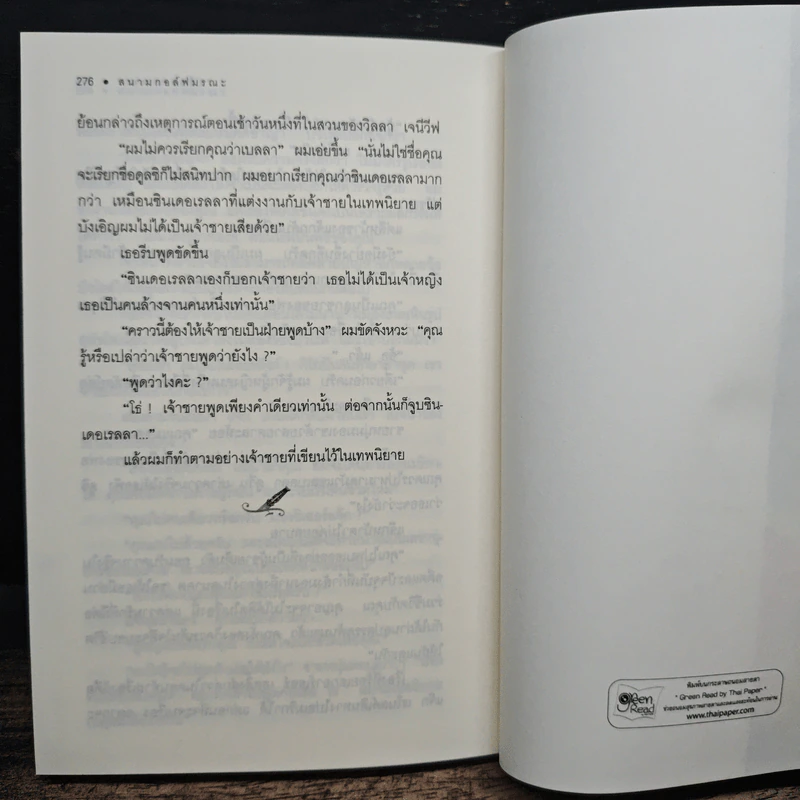 276 • สนามกอล์ฟมรณะ
ย้อนกล่าวถึงเหตุการณ์ตอนเช้าวันหนึ่งที่ในสวนของวิลลา เจนีวีฟ
“ผมไม่ควรเรียกคุณว่าเบลลา” ผมเอ่ยขึ้น “นั่นไม่ใช่ชื่อคุณ
จะเรียกชื่อดูลซิก็ไม่สนิทปาก ผมอยากเรียกคุณว่าซินเดอเรลลามาก
กว่า เหมือนซินเดอเรลลาที่แต่งงานกับเจ้าชายในเทพนิยาย แต่
บังเอิญผมไม่ได้เป็นเจ้าชายเสียด้วย”
เธอรีบพูดขัดขึ้น
“ซินเดอเรลลาเองก็บอกเจ้าชายว่า เธอไม่ได้เป็นเจ้าหญิง
เธอเป็นคนล้างจานคนหนึ่งเท่านั้น”
“คราวนี้ต้องให้เจ้าชายเป็นฝ่ายพูดบ้าง” ผมขัดจังหวะ “คุณ
รู้หรือเปล่าว่าเจ้าชายพูดว่ายังไง ?”
“พูดว่าไงคะ ?”
“โธ่ ! เจ้าชายพูดเพียงคำเดียวเท่านั้น ต่อจากนั้นก็จูบซิน-
เดอเรลลา...”
แล้วผมก็ทำตามอย่างเจ้าชายที่เขียนไว้ในเทพนิยาย
green Read
พิมพ์บนกระดาษถนอมสายตา
" Green Read by Thai Paper "
www.thaipaper.com